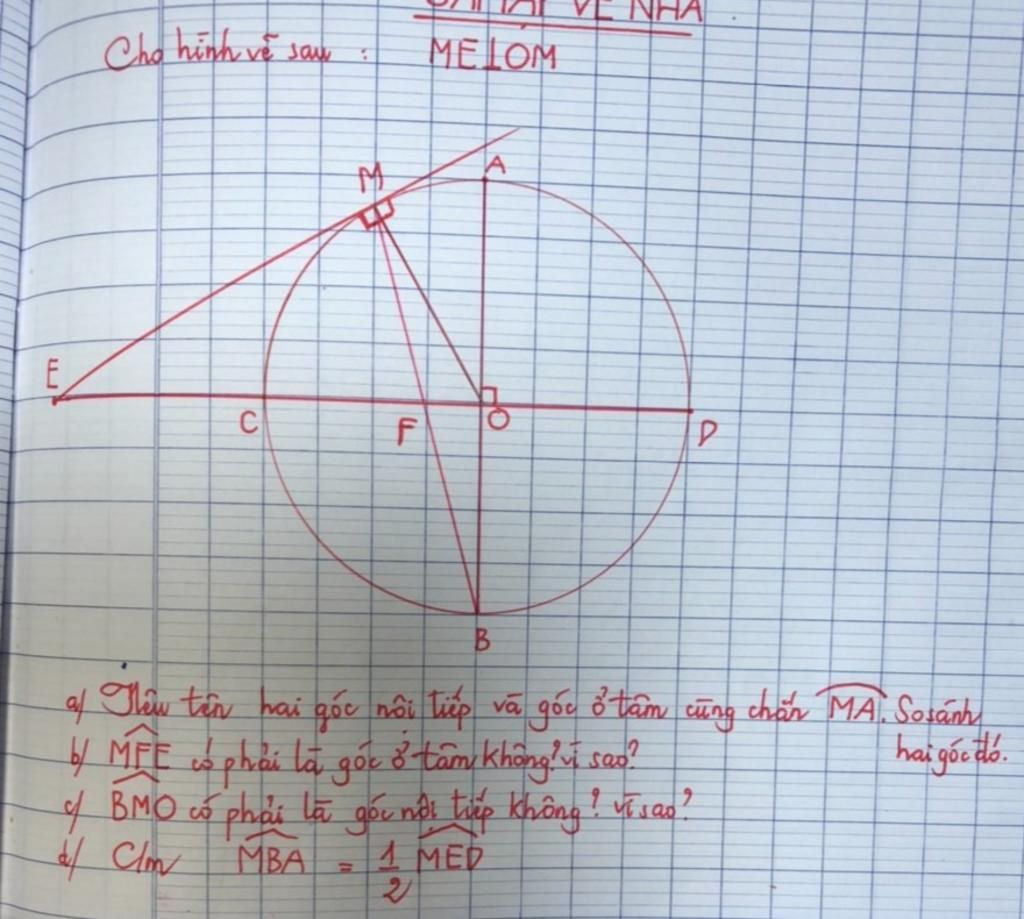 BÀI TẬP VỀ NHÀ
Cho hình vẽ sau : ME⊥OM
M A
E
C F O D
B
a/ Nêu tên hai góc nội tiếp và góc ở tâm cùng chắn MA. So sánh
hai góc đó.
b/ MFE có phải là góc ở tâm không? vì sao?
c/ BMO có phải là góc nội tiếp không? vì sao?
d/ C/m MBA = 1/2 MED